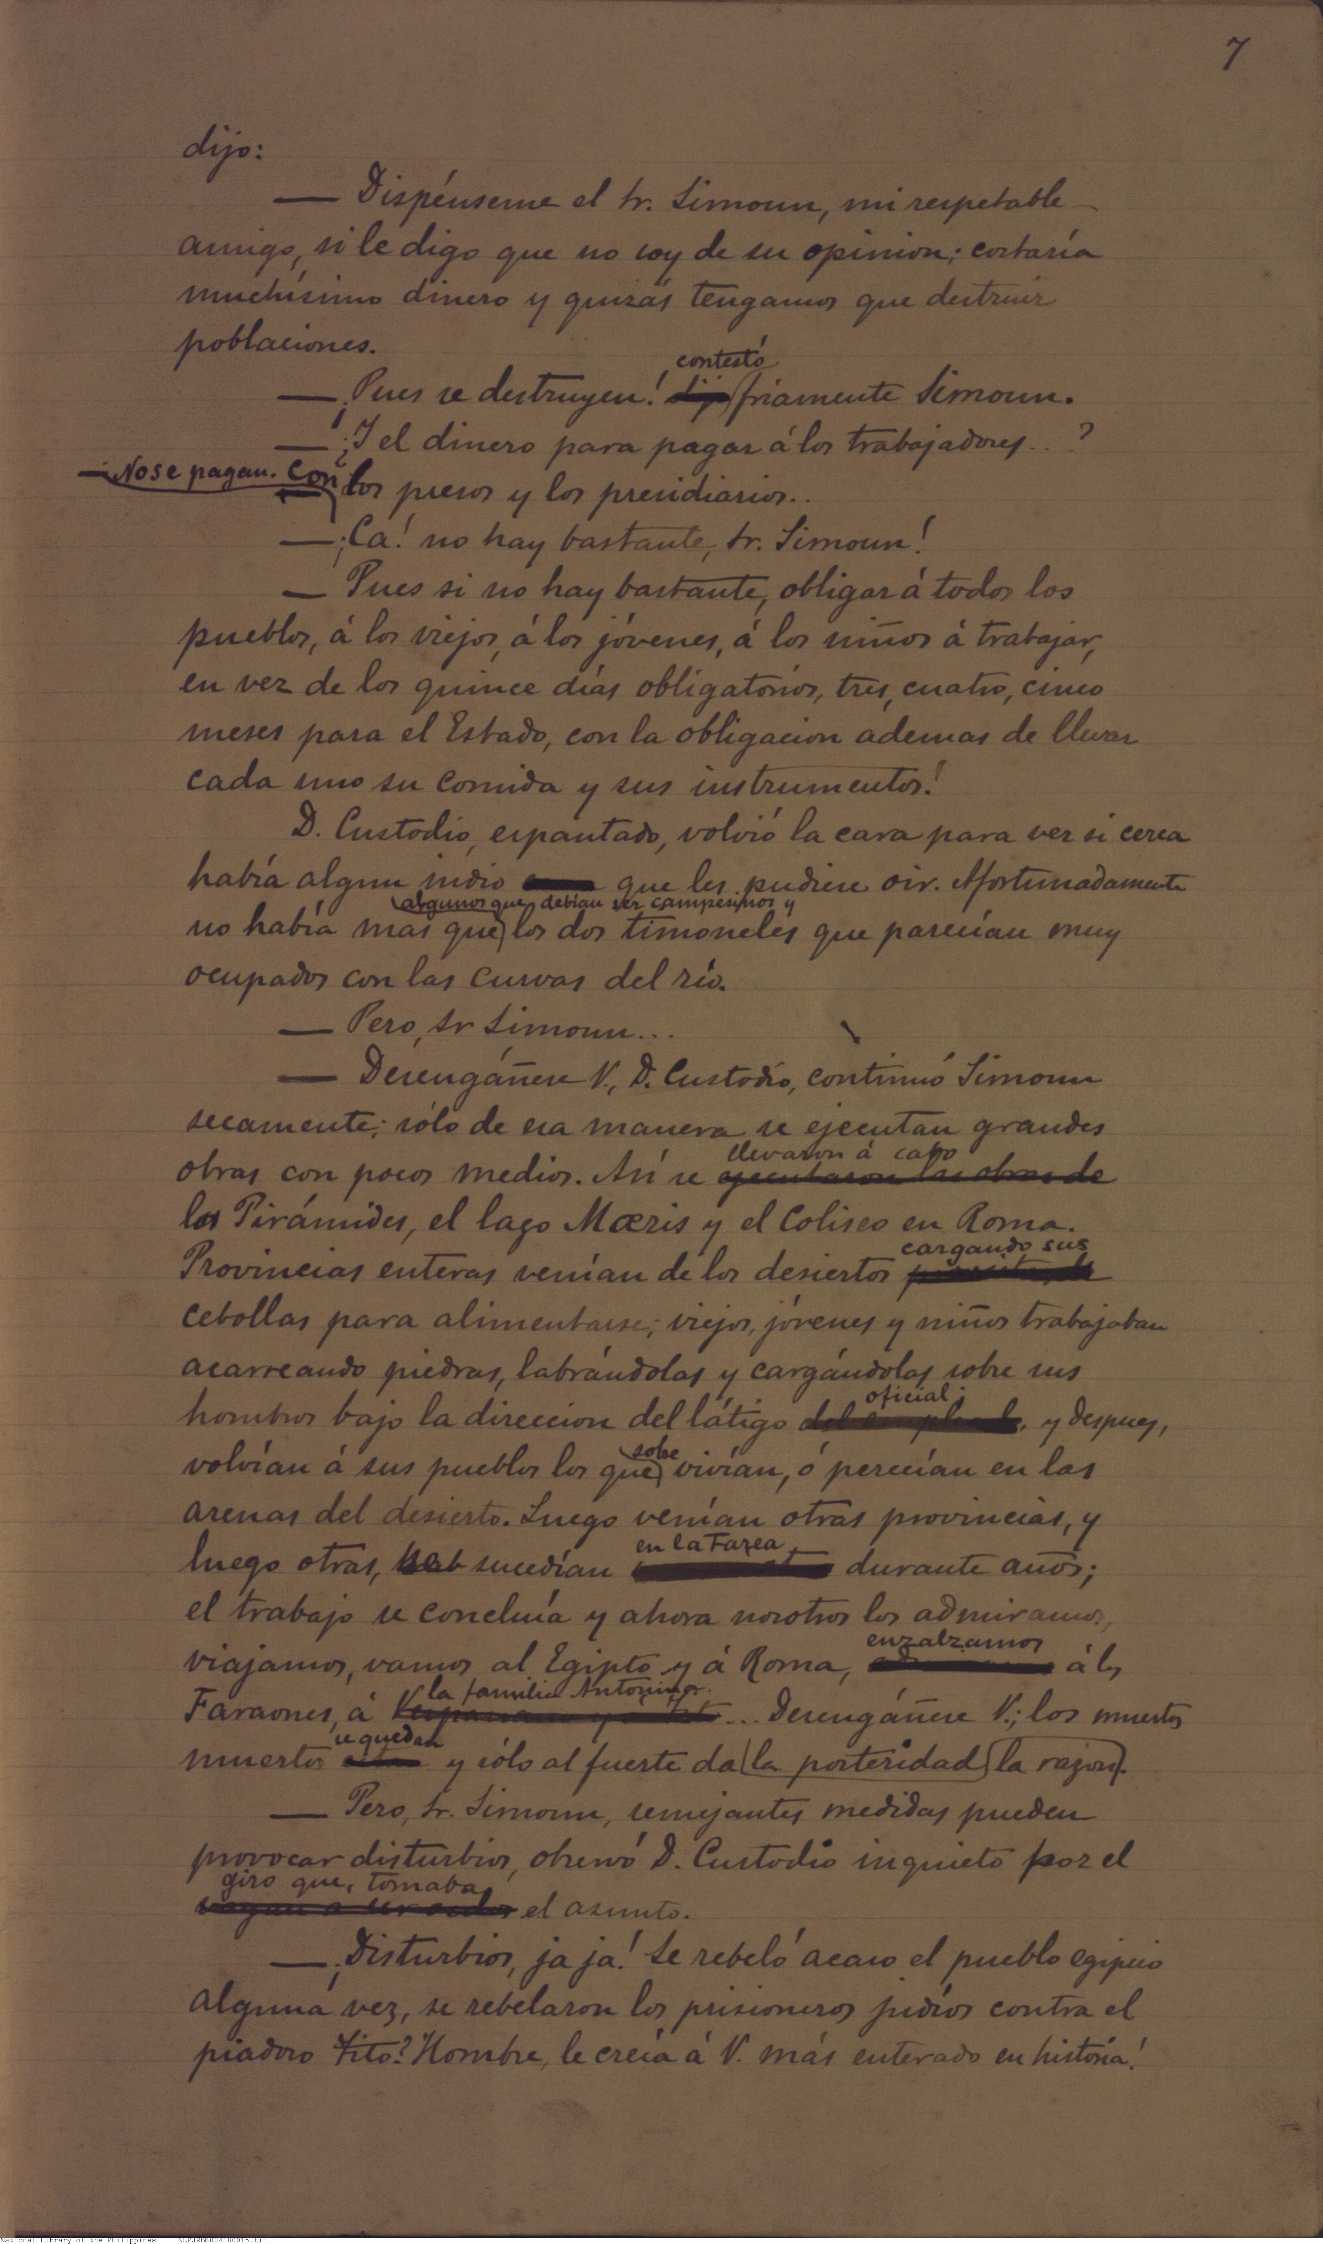 7
dijo:
— Dispénseme el Sr. Simoun, mi respetable
amigo, si le digo que no soy de su opinion; costaría
muchísimo dinero y quizás tengamos que destruir
poblaciones.
contestó
— ¡Pues se destruyen! friamente Simoun.
— ¿Y el dinero para pagar á los trabajadores...?
— No se pagan. Con
los presos y los presidiarios..
— ¡Ca! no hay bastante, Sr. Simoun!
— Pues si no hay bastante, obligar á todos los
pueblos, á los viejos, á los jóvenes, á los niños á trabajar,
en vez de los quince días obligatorios, tres, cuatro, cinco
meses para el Estado, con la obligacion ademas de llevar
cada uno su comida y sus instrumentos!
D. Custodio, espantado, volvió la cara para ver si cerca
había algun indio que les pudiese oir. Afortunadamente
algunos que debían ser campesinos y
no había mas que los dos timoneles que parecían muy
ocupados con las curvas del río.
— Pero, Sr Simoun...
— Desengáñese V., D. Custodio, continuó Simoun
secamente; sólo de esa manera se ejecutan grandes
llevaron á cabo
obras con pocos medios. Así se ejecutaron las obras de
las Pirámides, el lago Mœris y el Coliseo en Roma.
cargando sus
Provincias enteras venían de los desiertos
cebollas para alimentarse; viejos, jóvenes y niños trabajaban
acarreando piedras, labrándolas y cargándolas sobre sus
oficial;
hombros bajo la direccion del látigo del , y despues,
sobre
volvían á sus pueblos los que vivían, ó perecían en las
arenas del desierto. Luego venían otras provincias, y
en la tarea
luego otras, sucedían durante años;
el trabajo se concluía y ahora nosotros los admiramos,
enzalzamos
viajamos, vamos al Egipto y á Roma, á los
la familia Antonina.
Faraones, á Vespasiano y a Tito... Desengáñese V.; los muertos
se quedan
muertos y sólo al fuerte da la posteridad la razon.
— Pero, Sr. Simoun, semejantes medidas pueden
provocar disturbios, observó D. Custodio inquieto por el
giro que tomaba
el asunto.
— ¡Disturbios, ja ja! Se rebeló acaso el pueblo egipcio
alguna vez, se rebelaron los prisioneros judíos contra el
piadoso Tito? Hombre, le creía á V. más enterado en historia!
National Library of the Philippines